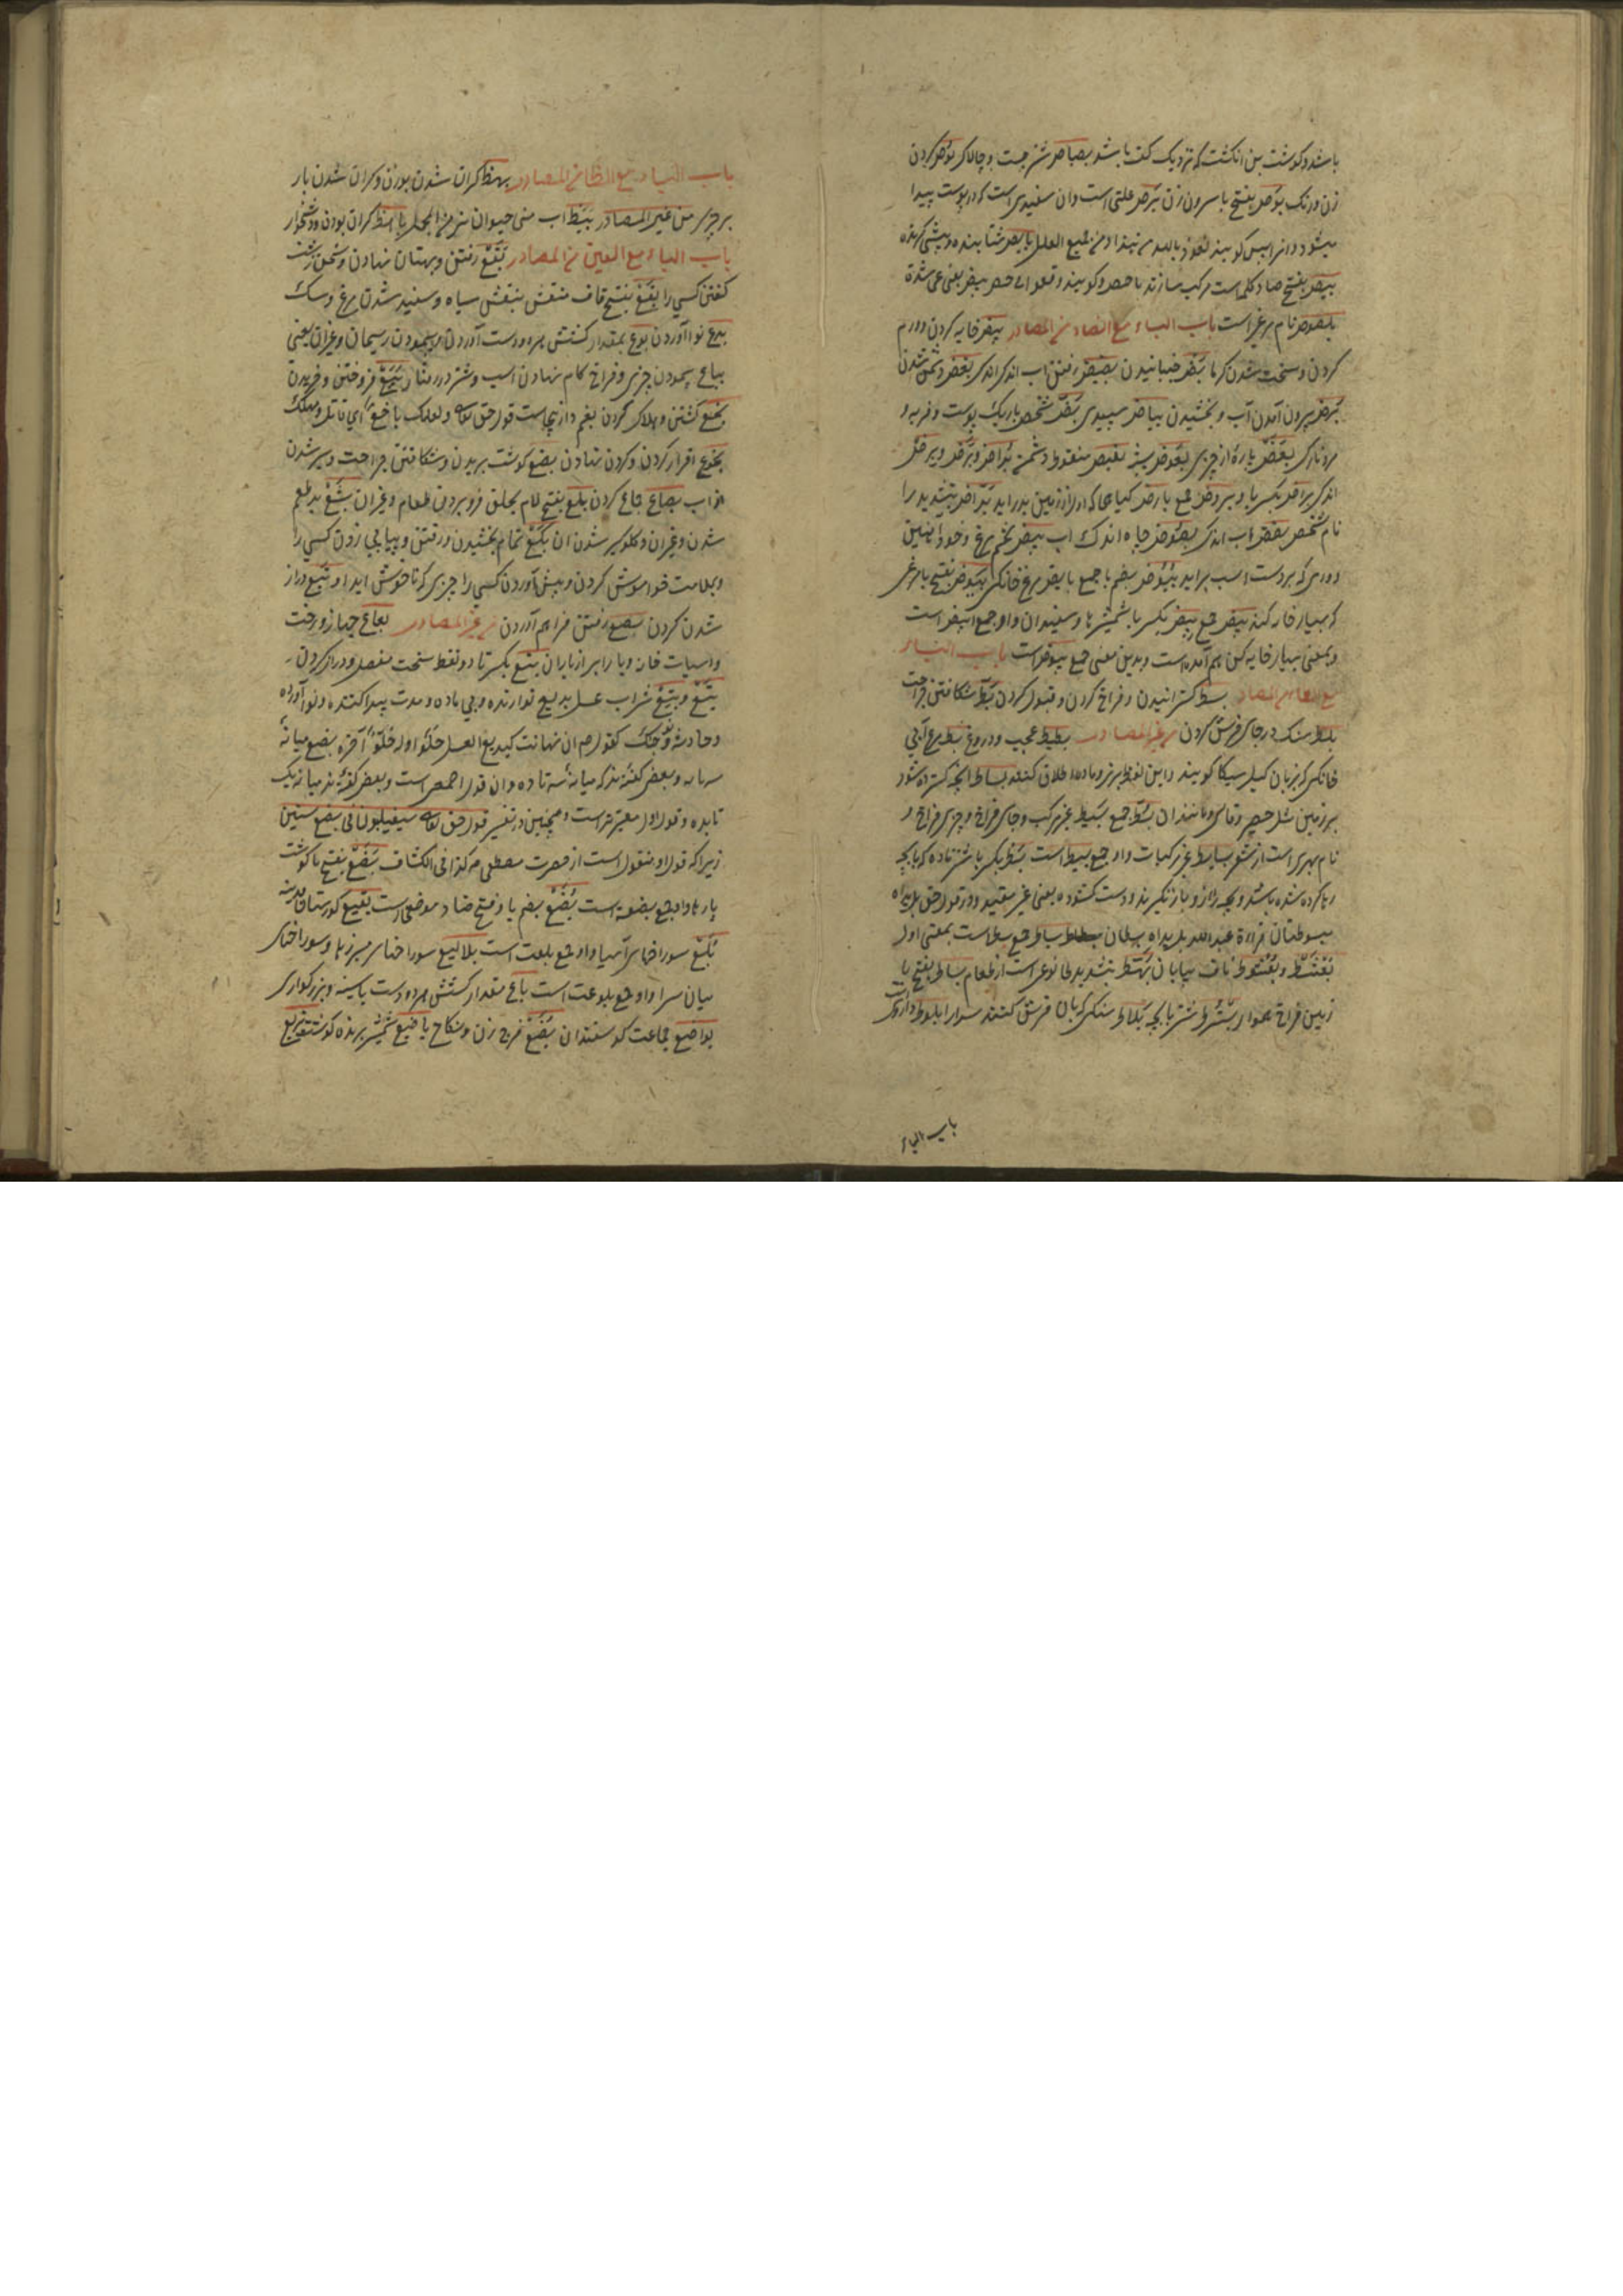 باشد و گوشت بن انگشت که نزدیک کف باشد بصباص شتر چست و چالاک بوص کردن
زن و رنک بوص بفتح با سرون زن برص علتی است و ان سفیدی است که در پوست پیدا
میشود و انرا پیس گویند نعوذ بالله من هذا و من جمیع العلل بابص شتابنده و پیشی گیرنده
بیص بفتح صاد کلمه است مرکب سازند با حیص و گویند وقعوا فی حیص بیص یعنی
بلصوص نام مرغی است باب الباء مع الضاد من المصادر بیض خایه کردن و ورم
کردن و سخت شدن گرما نبض جنبانیدن بضیض رفتن اب اندک اندک بغض دشمن شدن
برض بیرون آمدن آب و بخشیدن بیاض سپیدی بض شخص باریک پوست و فربه و
بعض پاره از چیزی بعوض پشه بغیض دشمن
اندک براض بکسر با و بروض جمع بارض گیاهی که اول از زمین بدر اید براض بتشدید را
نام شخص بضض اب اندک بضوض چاه اندک اب بیض تخم مرغ و خود اهنین
ورمی که بر دست اسب براید بیوض بضم با جمع بایض مرغ خانگی بیوض بفتح با مرغی
که بسیار خایه کند بیض جمع بیض بکسر با شمشیرها و سفیدان و او جمع ابیض است
و بمعنی بسیار خایه کن هم آمده است و بدین معنی جمع بیوض است باب الباء
مع الطاء من المصادر بسط گسترانیدن و فراخ کردن و قبول کردن بط شکافتن جراحت
بلط سنک در جای فرش کردن من غیر المصادر بطیط عجیب و دروغ بط مرغ آبی
خانگی که بزبان گیل سیکا گویند و این لفظ بر نر و ماده اطلاق کنند بساط انچه گسترده شود
بر زمین مثل حصیر و قالی و مانند ان بسط جمع بسیط غیر مرکب و جای فراخ و چیزی فراخ و
نام بحری است از شعر بسایط غیر مرکبات و او جمع بسیط است بسط بکسر با شتر ماده که با بچه
رها کرده شده باشد و بچه را از و باز نگیرند و دست گشوده یعنی غیر مقید و در قول حق بل یداه
مبسوطتان قراءة عبد الله بل یداه بسطان بساط جمع بسط است بمعنی اول
بعثط و بعثوط ناف بیابان بهط بتشدید طا نوعی است از طعام بساط بفتح با
زمین فراخ هموار شتر با بچه بلاط سنگی که بان فرش کنند سرا را بلوط داروی
باب الباء
باب الباء مع الظا من المصادر بهظ گران شدن بوزن و گران شدن بار
بر چیزی من غیر المصادر بیظ اب منی حیوان نر من المجمل باهظ گران بودن و دشخوار
باب الباء مع العین من المصادر بقع رفتن و بهتان نهادن و سخن زشت
گفتن کسی را بقع بفتح قاف منقش بنقش سیاه و سفید شدن مرغ و سگ
بدع نو آوردن بوع بمقدار کشش هر دو دست آوردن و پیمودن ریسمان و غیر ان یعنی
بباع پیمودن چیزی و فراخ گام نهادن اسب و شتر در رفتار بیع فروختن و خریدن
بخع کشتن و هلاک کردن بغم و از ینجاست قول حق تعالی و لعلک باخع ای قاتل و مهلک
بخوع اقرار کردن و گردن نهادن بضع گوشت بریدن و شکافتن جراحت و سیر شدن
از اب بضاع جماع کردن بلع بفتح لام بحلق فرو بردن طعام و غیر ان بشع بد طعم
شدن و غیر ان و گلوگیر شدن ان بکع تمام بخشیدن و رفتن و پیاپی زدن کسی را
و بملامت خواموش کردن و پیش آوردن کسی را چیزی که ناخوش اید او را بتع دراز
شدن گردن بصع رفتن فراهم آوردن من غیر المصادر بعاع جهاز و رخت
و اسباب خانه و بار ابر از باران بتع بکسر تا دو نقط سخت مفصل و دراز گردن
بتع و بتع شراب عسل بدیع نو ارنده و چیزی بی ماده و مدت پیدا کننده و نو آورده
و خیک کقوله م ان تهامة کبدیع العسل حلو اوله حلو آخره بضع میانه
سه تا نه و بعضی گفته اند که میانه سه تا ده و ان قول اصح است و بعضی گفته اند میانه یک
تا نه و قول اول معتبر تر است و همچنین در تفسیر قول حق تعالی سیغلبون فی بضع سنین
زیرا که قول او منقول است از حضرت مصطفی م کذا فی الکشاف بضع بفتح با گوشت
پارها و او جمع بضعة است بضع بضم با و فتح ضاد موضعی است بقیع گورستان مدینه
بلع سوراخهای آسیا و او جمع بلعت است بلالیع سوراخهای و سوراخهای
میان سرا و او جمع بلوعت است باع مقدار کشش هر دو دست با سینه و بزرگواری
بواضع جماعت گوسفندان بضع فرج زن و نکاح باضع شمشیر برنده گوشت